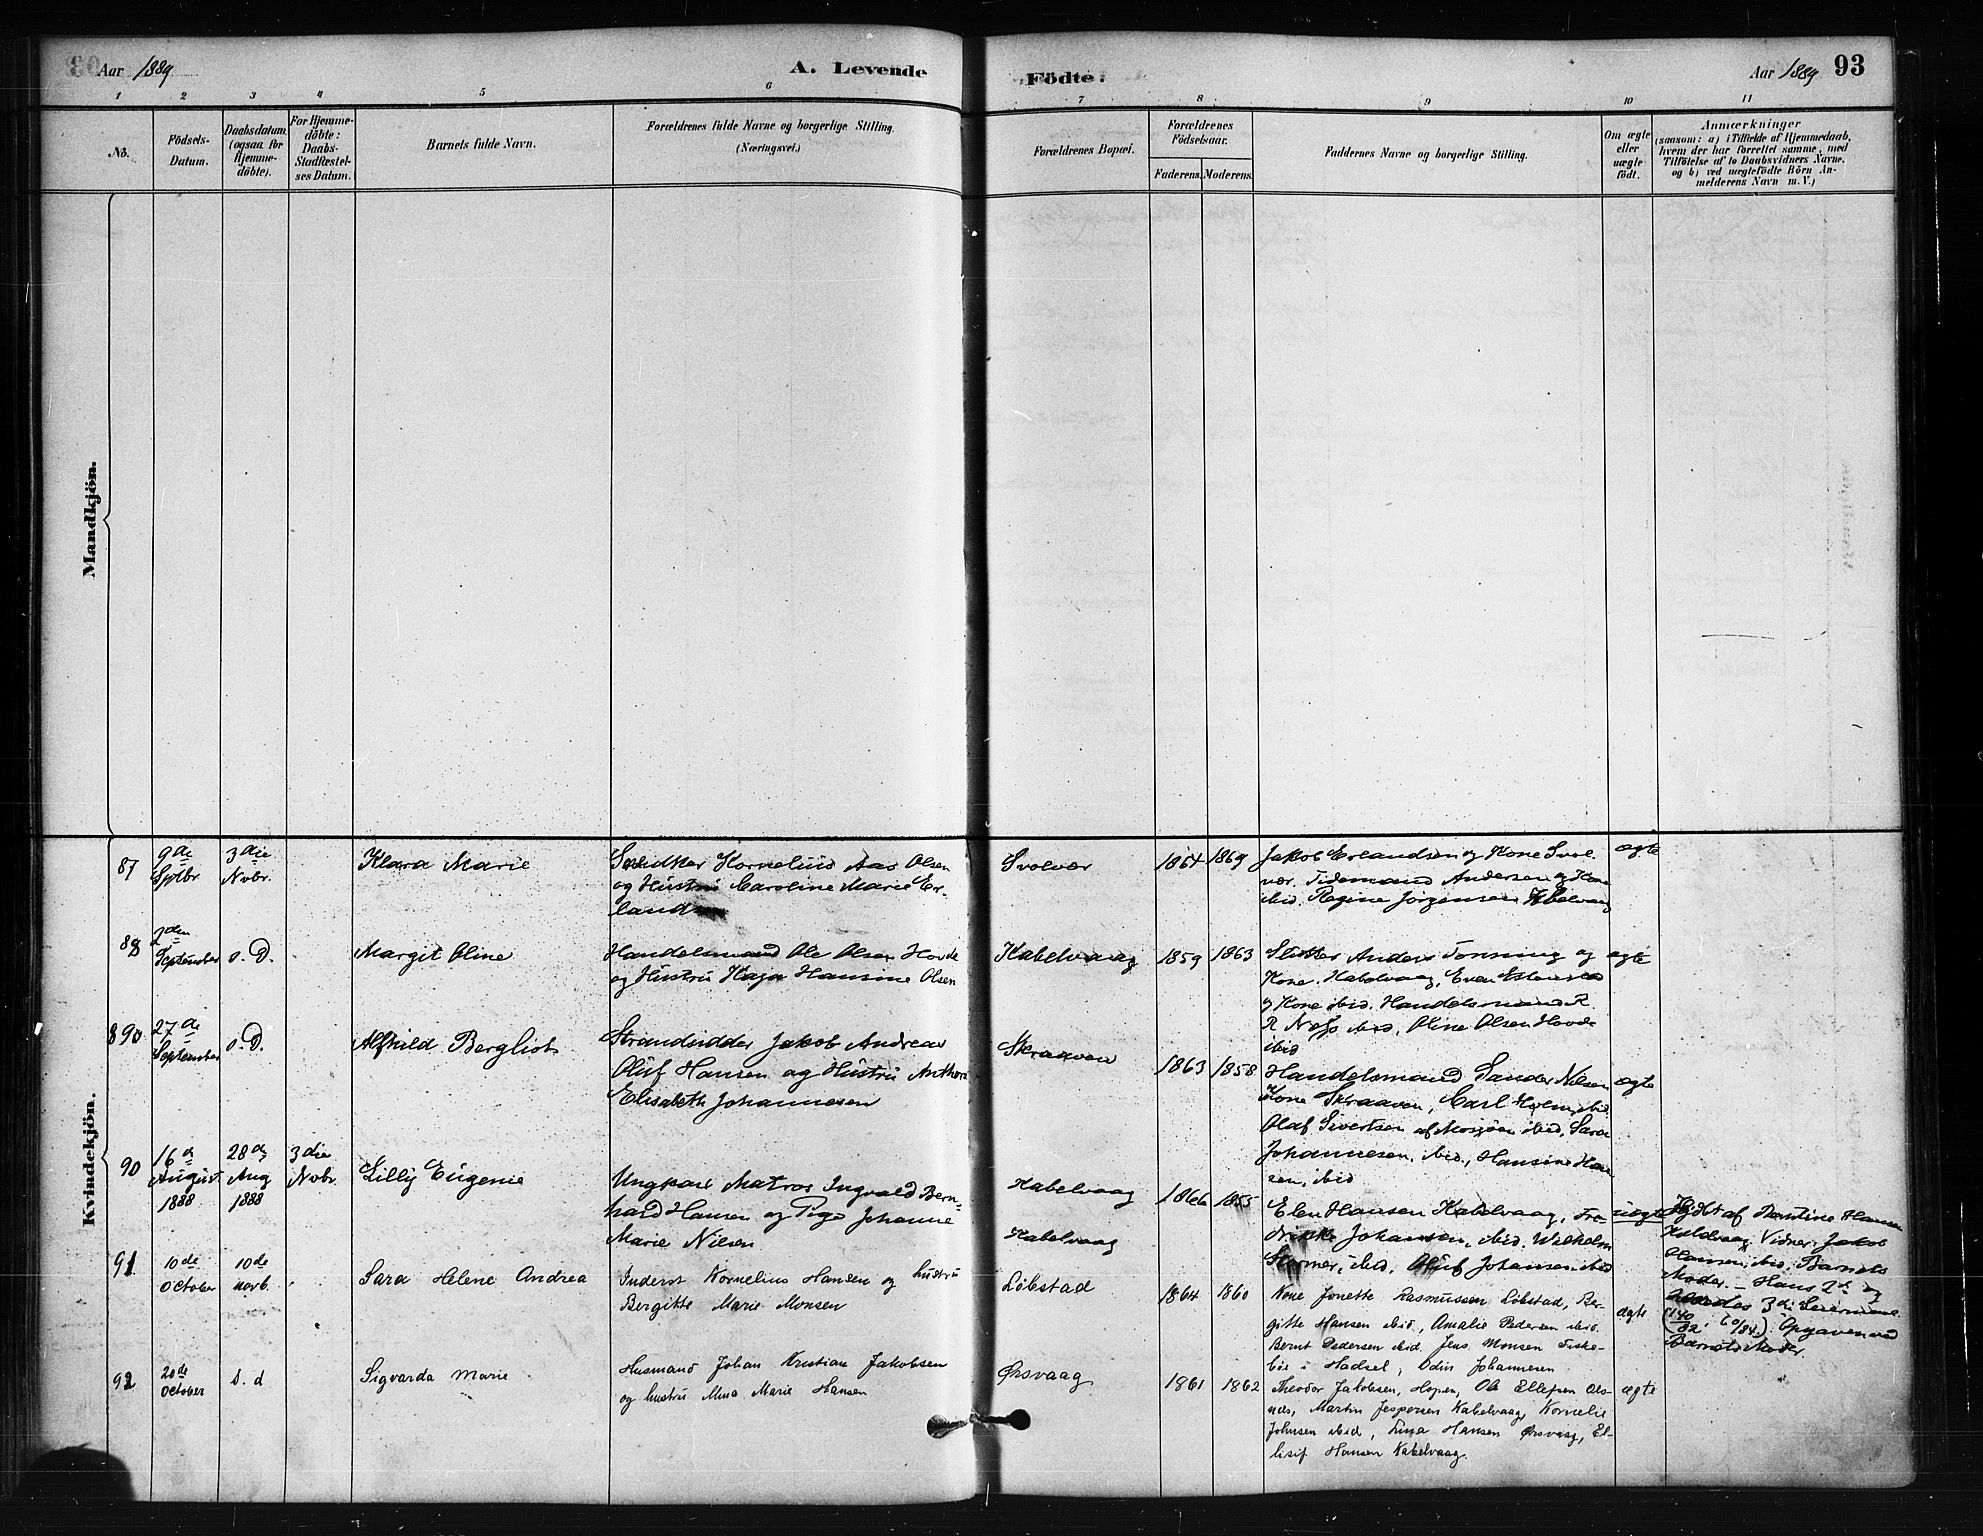 Aar 1889
A. Levende
Födte.
Aar 1889 93
1 2 3 4 5 6 7 8 9 10 11
No.
Födsels-
Datum.
Daabsdatum
(ogsaa for
Hjemme-
döbte).
For Hjemme-
döbte:
Daabs-
Stadfæstel-
ses Datum.
Barnets fulde Navn.
Forældrenes fulde Navne og borgerlige Stilling.
(Næringsvei.)
Forældrenes Bopæl.
Forældrenes
Födselsaar.
Faderens. Moderens.
Faddernes Navne og borgerlige Stilling.
Om ægte
eller
uægte
födt.
Anmærkninger
(saasom: a) i Tilfælde af Hjemmedaab,
hvem der har forrettet samme, med
Tilföielse af to Daabsvidners Navne,
og b) ved uægtefödte Börn An-
melderens Navn m. V.)
Mandkjön.
Kvindekjön.
87
9de
Sptbr
3die
Nvbr.
Klara Marie
Kornelius Aas Olsen
og Hustru Caroline Marie Er-
landsen
Svolvær
1864 1869
Jakob Erlandsen og Kone Svol-
vær. Tidemand Andersen og Kone
ibid. Regine Jörgensen Kabelvaag
ægte
88
2den
September
s. D.
Margit Oline
Handelsmand Ole Olsen Hovde
og Hustru Kaja Hansine Olsen
Kabelvaag
1859 1863
Anders Tonning og
Kone. Kabelvaag, Even
og Kone ibid. Handelsmand R.
R Næss ibid, Oline Olsen Hovde
ibid
ægte
89
27de
September
s. D.
Alfhild Bergliot
Strandsidder Jakob Andreas
Oluf Hansen og Hustru Anthora
Elisabeth Johannesen
Skraaven
1863 1858
Handelsmand Sander Nilsen
Kone Skraaven, Carl Holm, ibid.
Olaf Sivertsen af Mosjøen ibid, Sara
Johannesen, ibid., Hansine Han-
sen, ibid
ægte
90
16de
August
1888
28de
Aug
1888
3die
Nvbr.
Lilly Eugenie
Ungkarl Matros Ingvald Bern-
hard Hansen og Pige Johanne
Marie Nilsen
Kabelvaag
Kabelvaag
1866 1855
Elen Hansen Kabelvaag, Fre-
drikke Johansen, ibid. Wilhelm
Stormer, ibid, Oluf Johansen ibid
uægte
Hjdbt af Bentine Hansen
Kabelvaag Vidner: Jakob
Hansen, ibid. Barnets
Moder. – Hans 2de og
3die Leiermaal
Opgaven ved
Barnets Moder.
91
10de
October
10de
novb.
Sara Helene Andrea
Inderst Kornelius Hansen og hustru
Bergitte Marie Monsen
Löbstad
1864 1860
Kone Jonette Rasmussen Löbstad, Ber-
gitte Hansen ibid, Amalie Pedersen ibid.
Bernt Pedersen ibid. Jens Monsen Fiske-
böl i Hadsel, Odin Johannesen
ægte
92
20de
October
s. d
Sigvarda Marie
Husmand Johan Kristian Jakobsen
og hustru Mina Marie Hansen
Ørsvaag
1861 1862
Theodor Jakobsen, Hopen, Ole Ellefsen Ols-
næs, Martin Jespersen Kabelvaag, Kornelie
Johnsen ibid, Lina Hansen Ørsvaag, El-
lisif Hansen Kabelvaag.
ægte